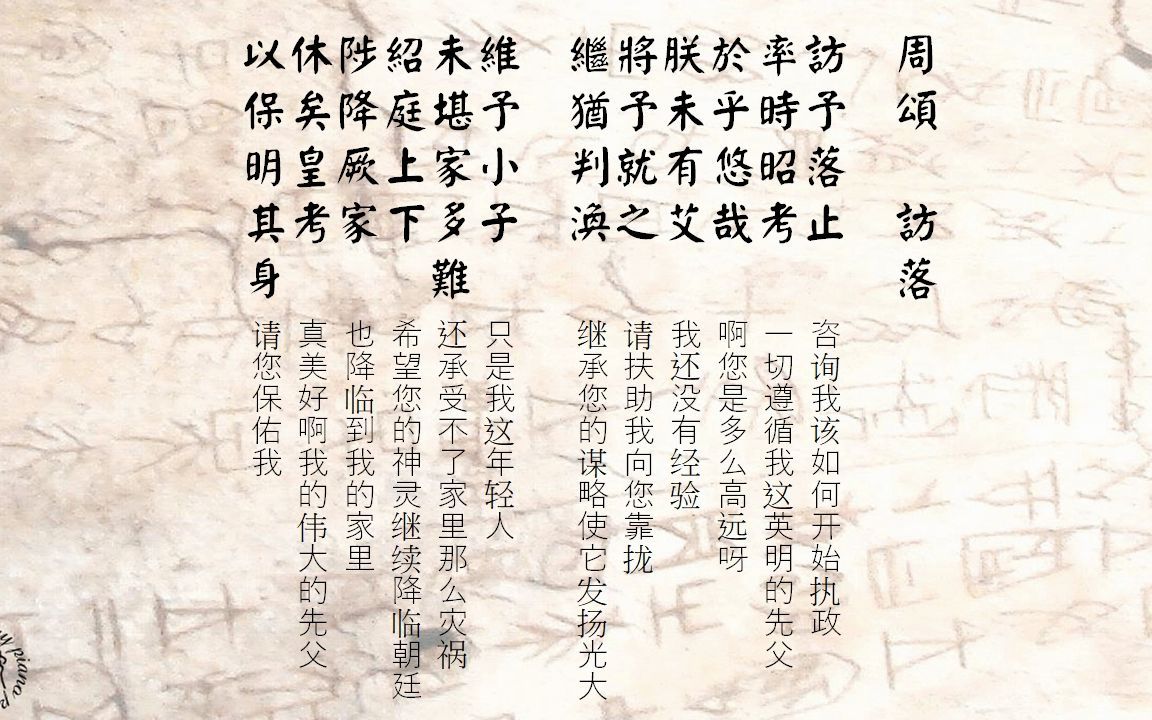 周頌 訪落
訪予落止
率時昭考
於乎悠哉
朕未有艾
將予就之
繼猶判渙
維予小子
未堪家多難
紹庭上下
陟降厥家
休矣皇考
以保明其身
咨询我该如何开始执政
一切遵循我这英明的先父
啊您是多么高远呀
我还没有经验
请扶助我向您靠拢
继承您的谋略使它发扬光大
只是我这年轻人
还承受不了家里那么灾祸
希望您的神灵继续降临朝廷
也降临到我的家里
真美好啊我的伟大的先父
请您保佑我
piano